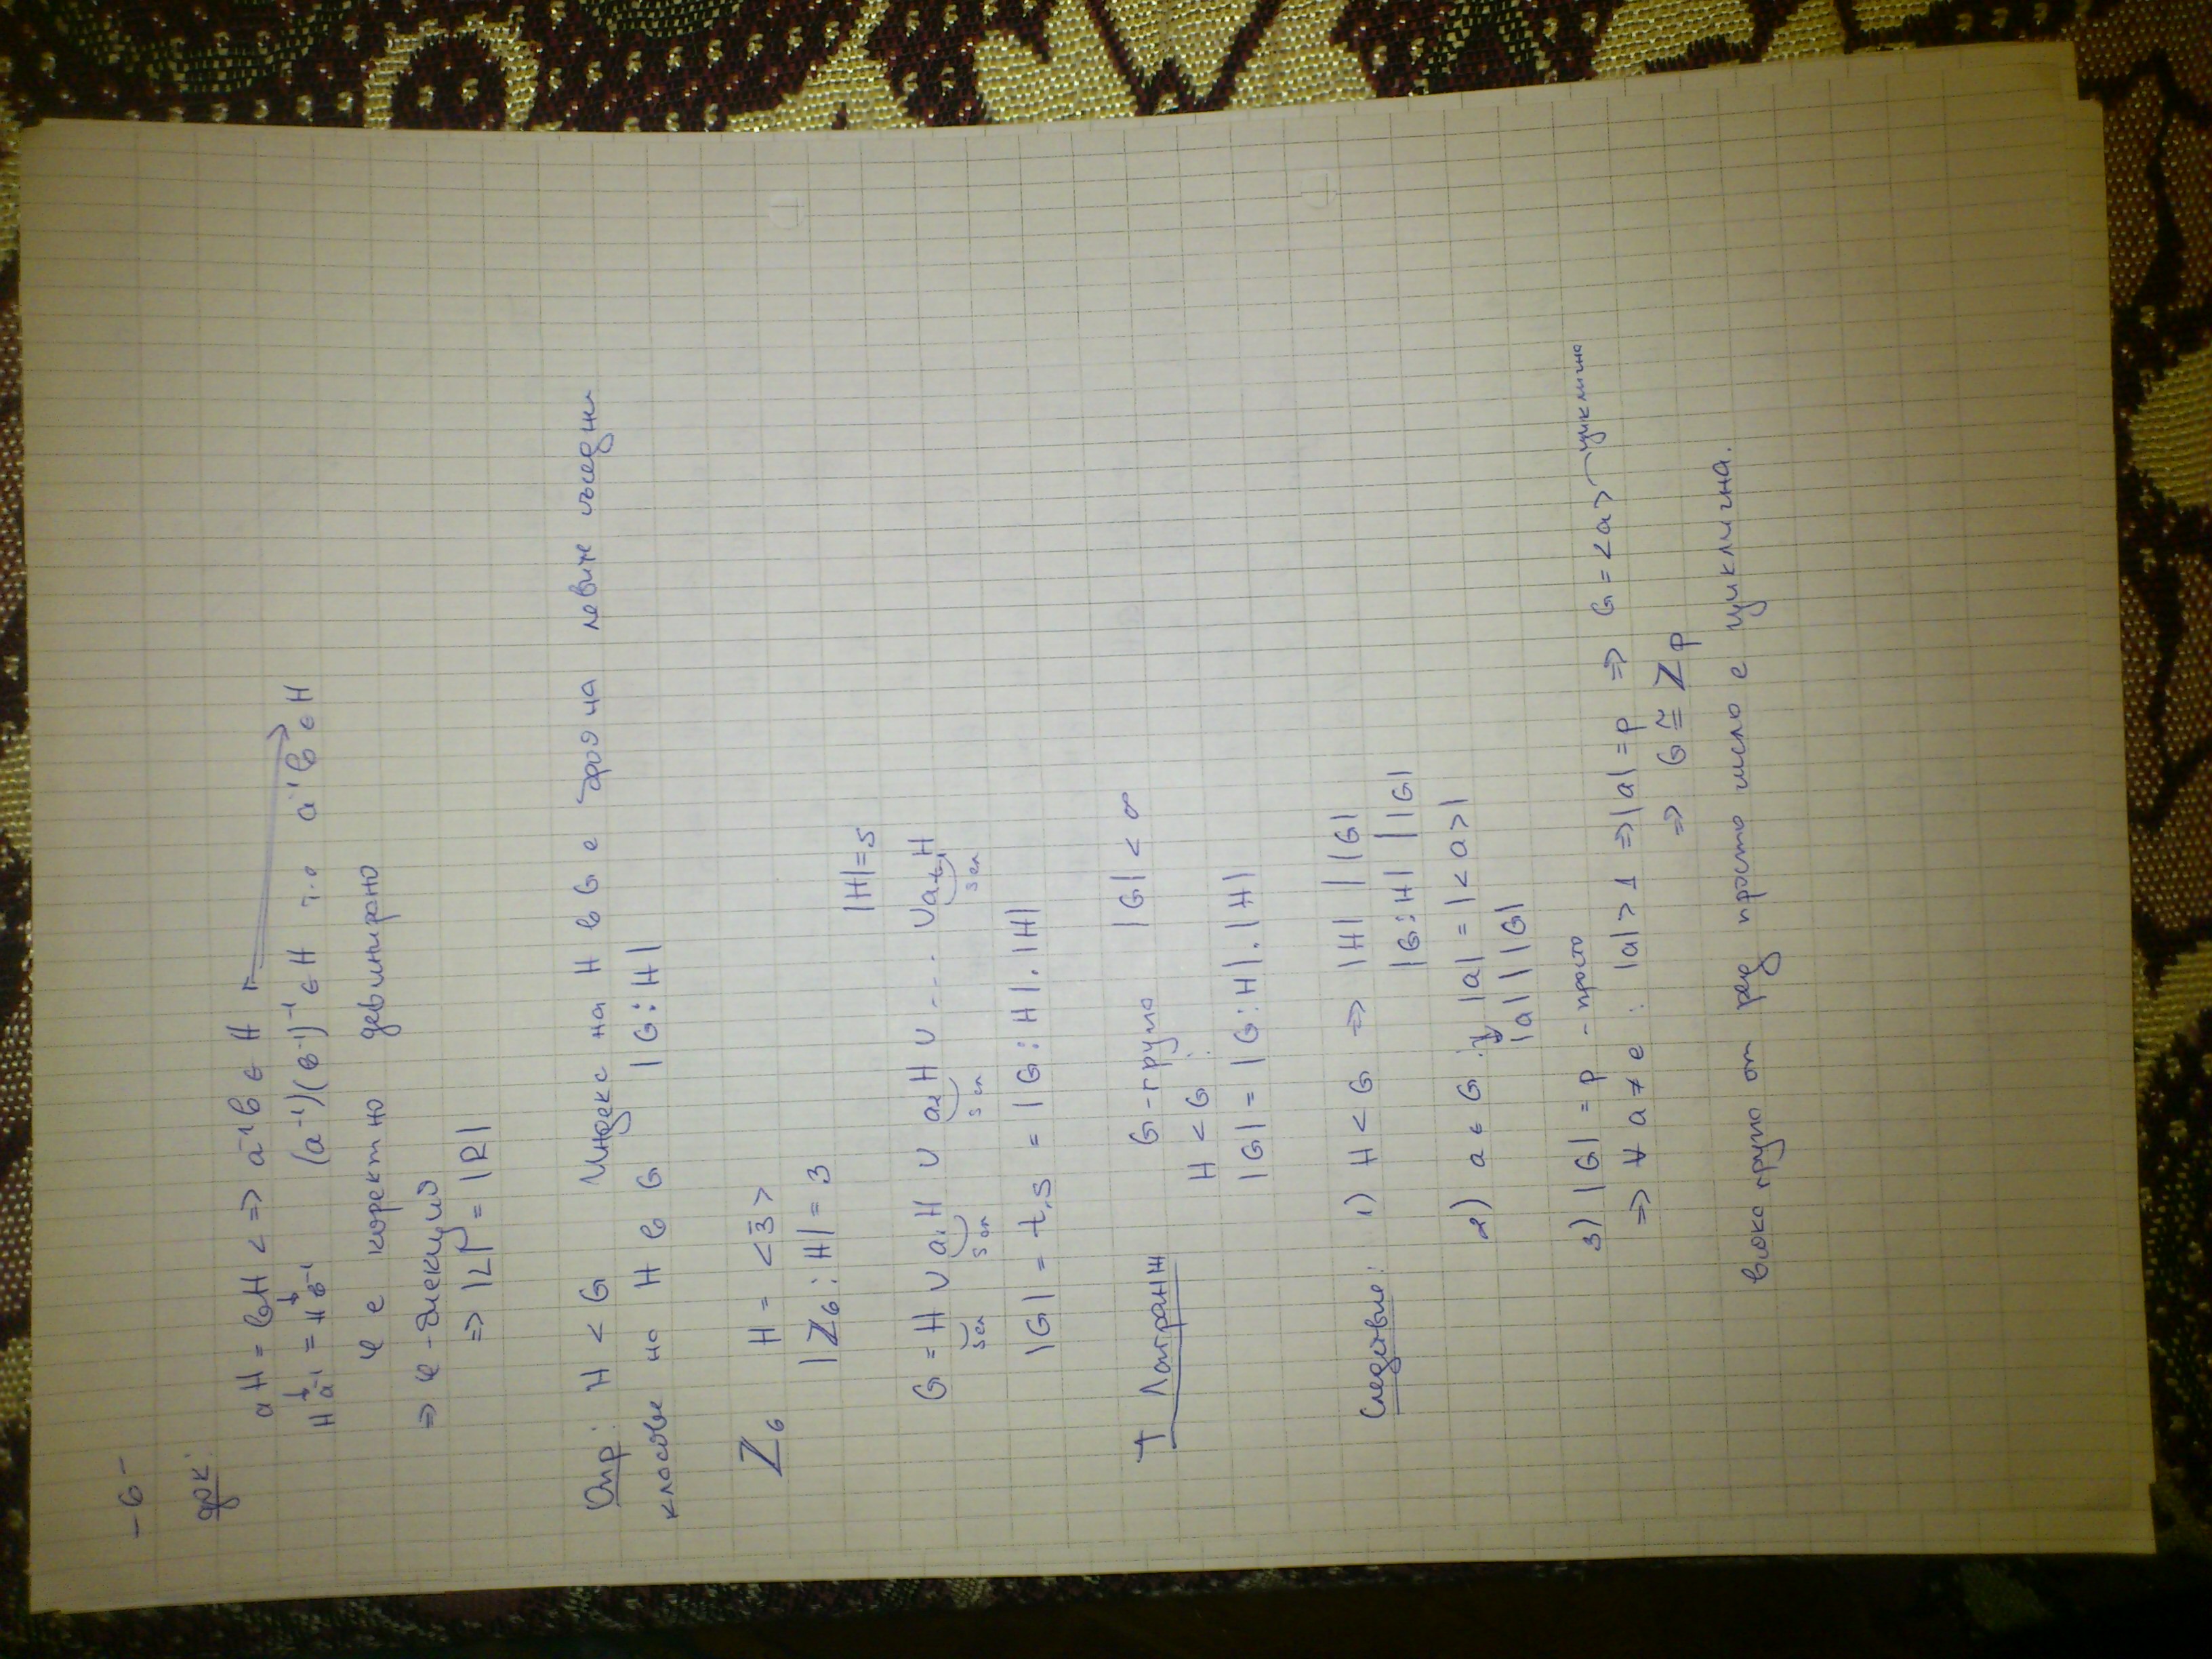 - 6 -
док:
aH = bH <=> a⁻¹b ∈ H
Ha⁻¹ = Hb⁻¹ (a⁻¹)(b⁻¹)⁻¹ ∈ H т.е a⁻¹b ∈ H
φ е коректно дефинирано
=> φ - биекция
=> |L| = |R|
Опр: H < G Индекс на H в G е броя на левите съседни
класове на H в G |G:H|
Z₆ H = <3̄>
|Z₆:H| = 3
|H| = s
G = H ∪ a₁H ∪ a₂H ∪ ... ∪ aₜ₋₁H
s ел s ел s ел s ел
|G| = t.s = |G:H|.|H|
Т Лагранж G - група |G| < ∞
H < G :
|G| = |G:H|.|H|
Следствие: 1) H < G => |H| | |G|
|G:H| | |G|
2) a ∈ G : |a| = |<a>|
|a| | |G|
3) |G| = p - просто
=> ∀ a ≠ e : |a| > 1 => |a| = p => G = <a> циклична
=> G ≅ Zp
Всяка група от ред просто число е циклична.